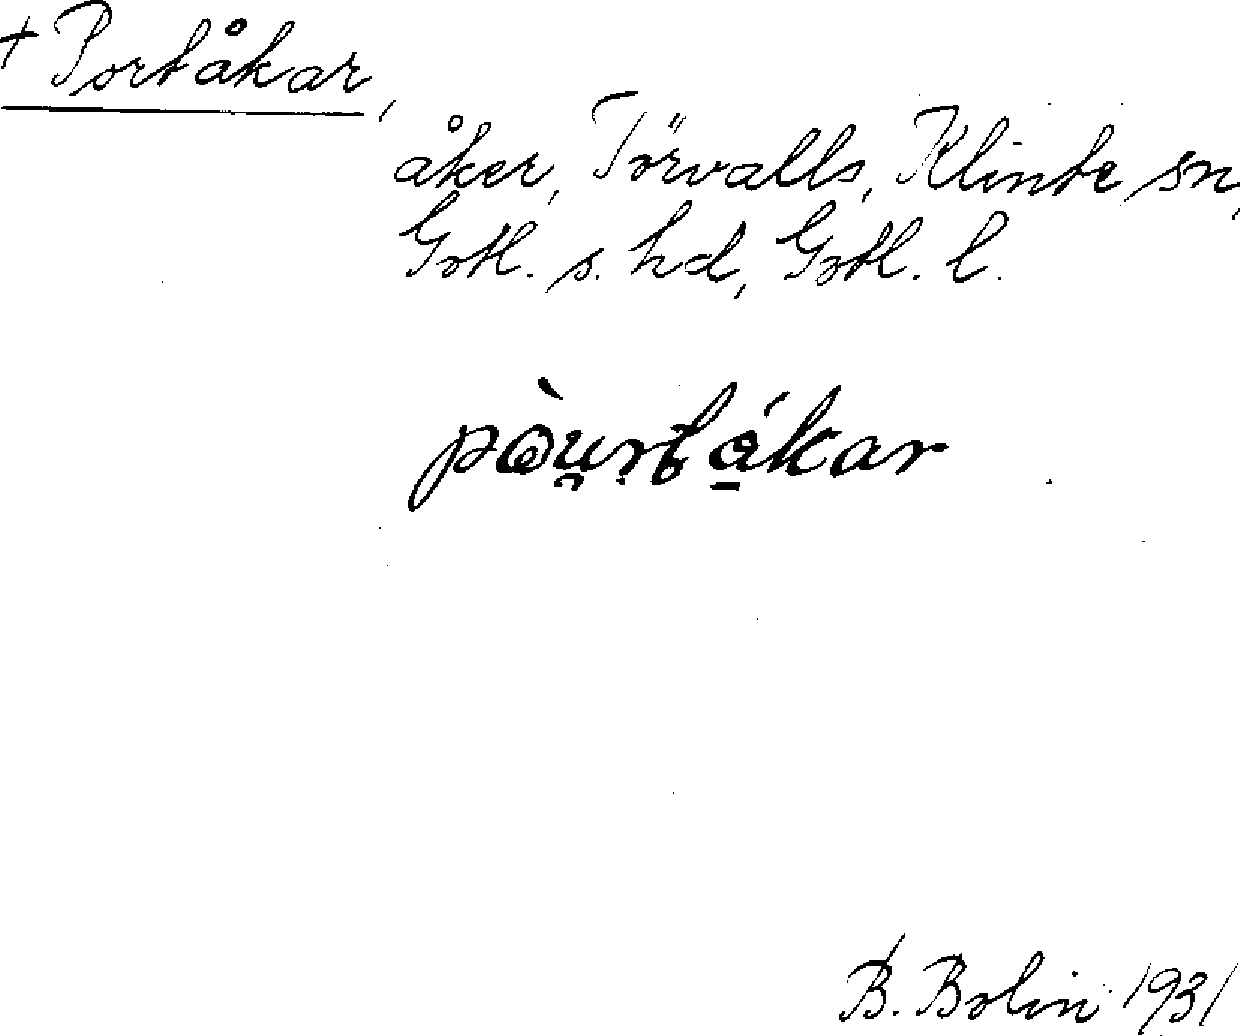 + Portåkar,
åker, Törvalls, Klinte sn,
Gotl. s. hd, Gotl. l.
pòu̯rtákar
B. Bolin 1931